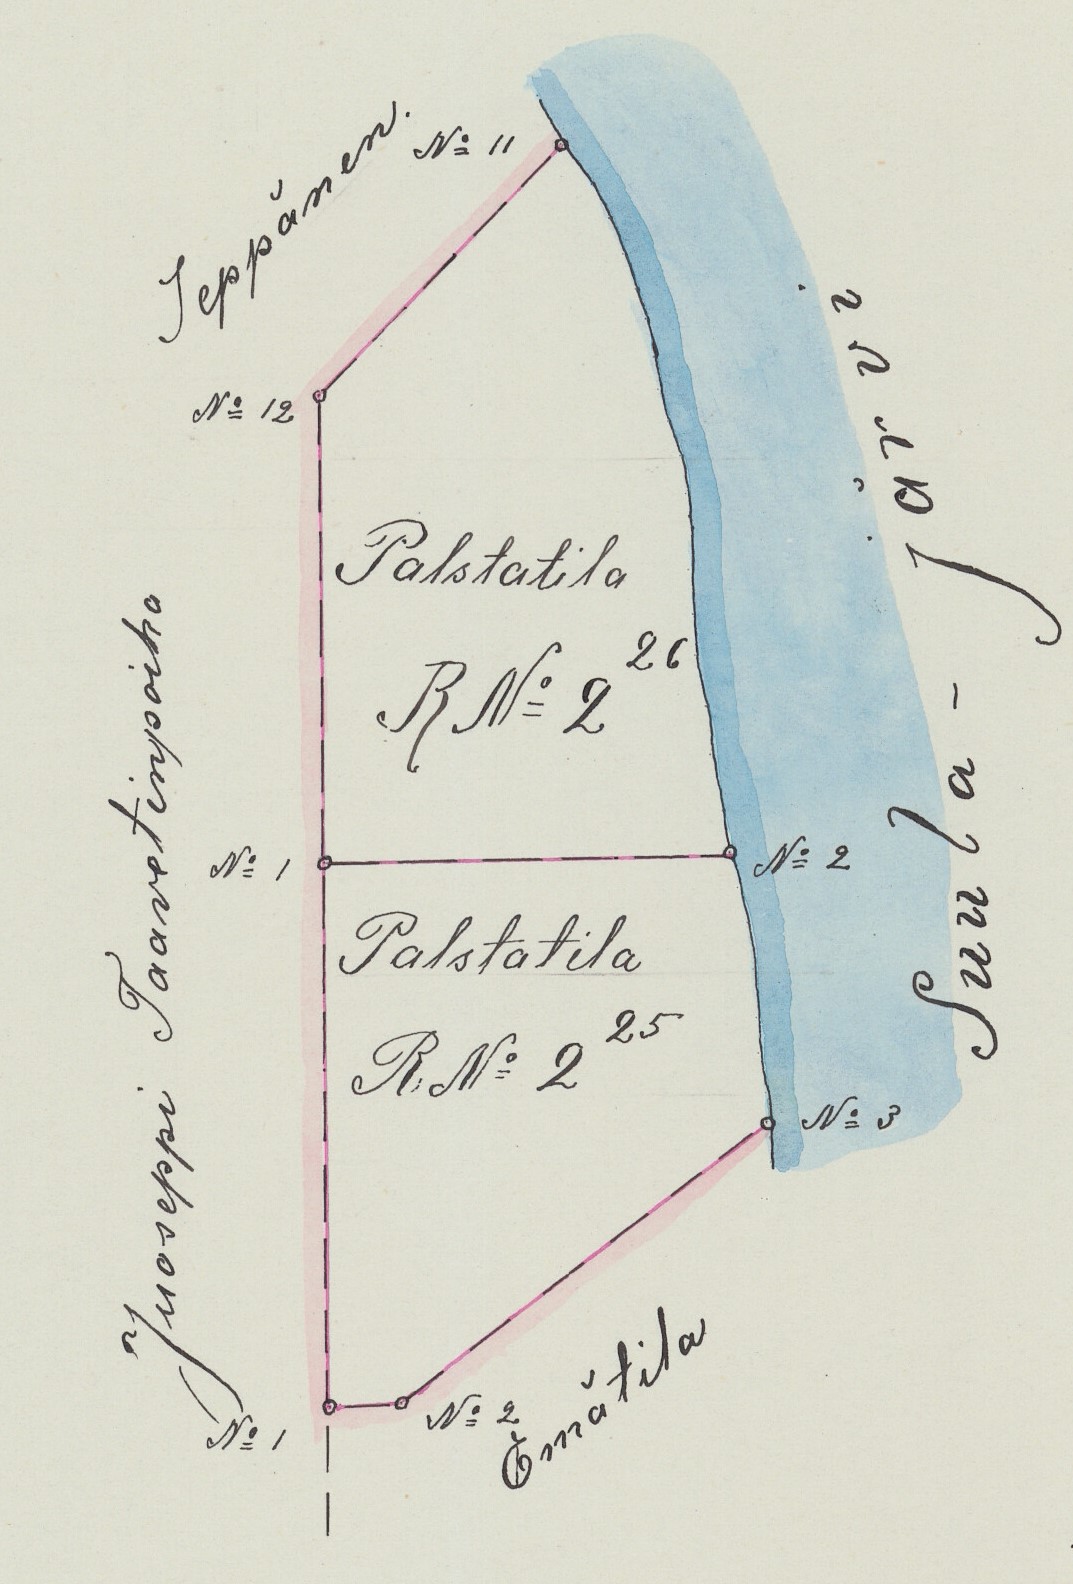 Seppänen.
Nº 11
Nº 12
Palstatila
R Nº 2²⁶
Nº 1
Nº 2
Palstatila
R. Nº 2²⁵
Nº 3
Nº 1
Nº 2
Emätila
Juoseppi Taavetinpoika
Suula-
järvi